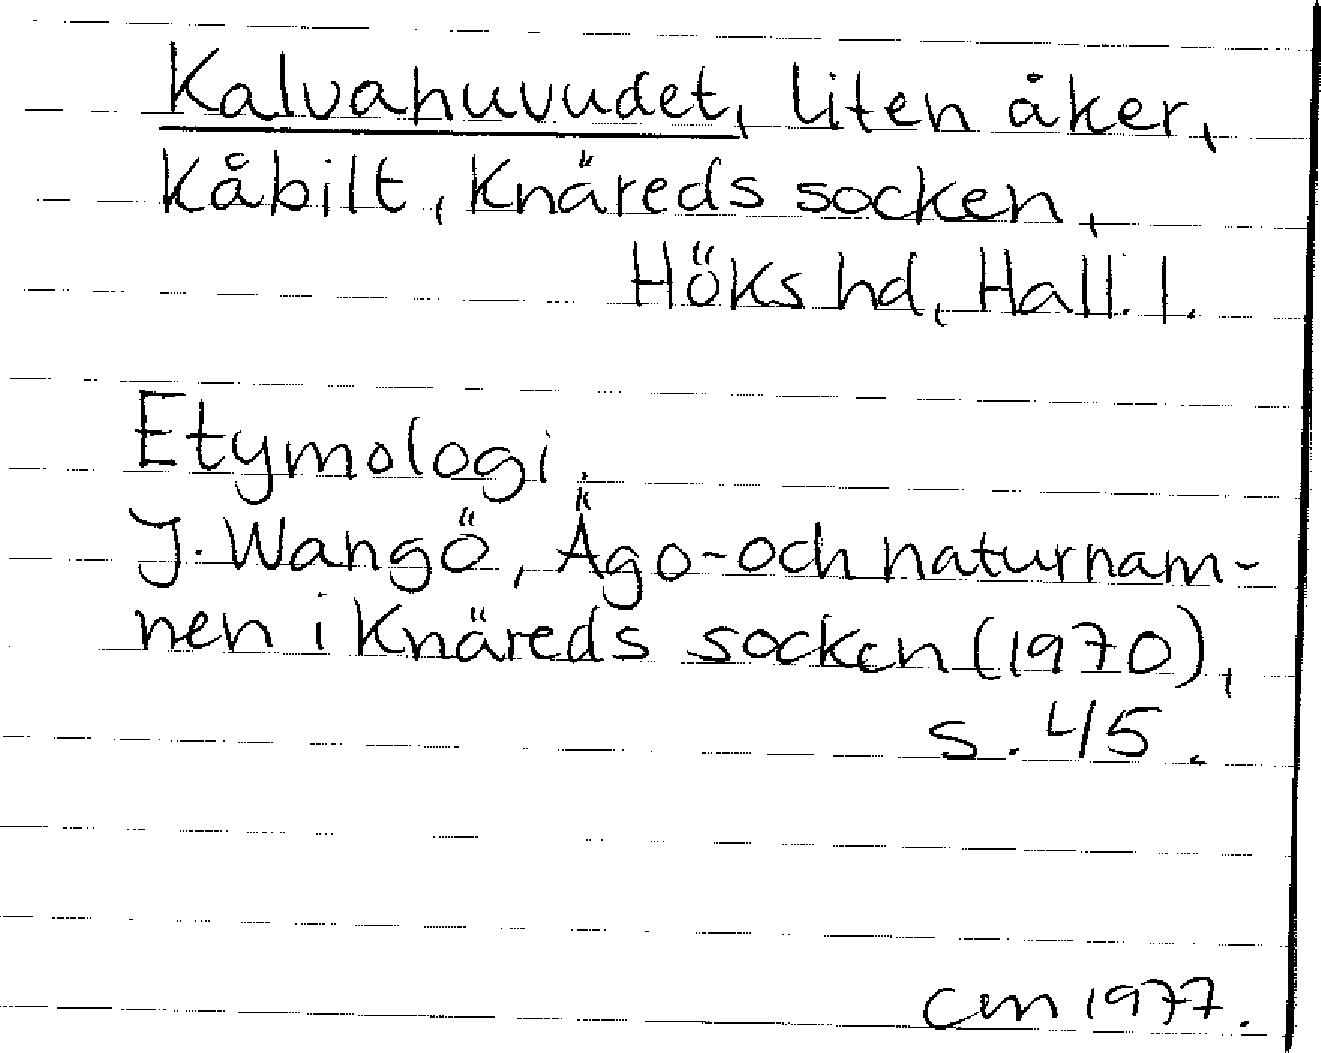 Kalvahuvudet, liten åker,
Kåbilt, Knäreds socken,
Höks hd, Hall. l.
Etymologi.
J. Wangö, Ägo- och naturnam-
nen i Knäreds socken (1970),
s. 45.
cm 1977.